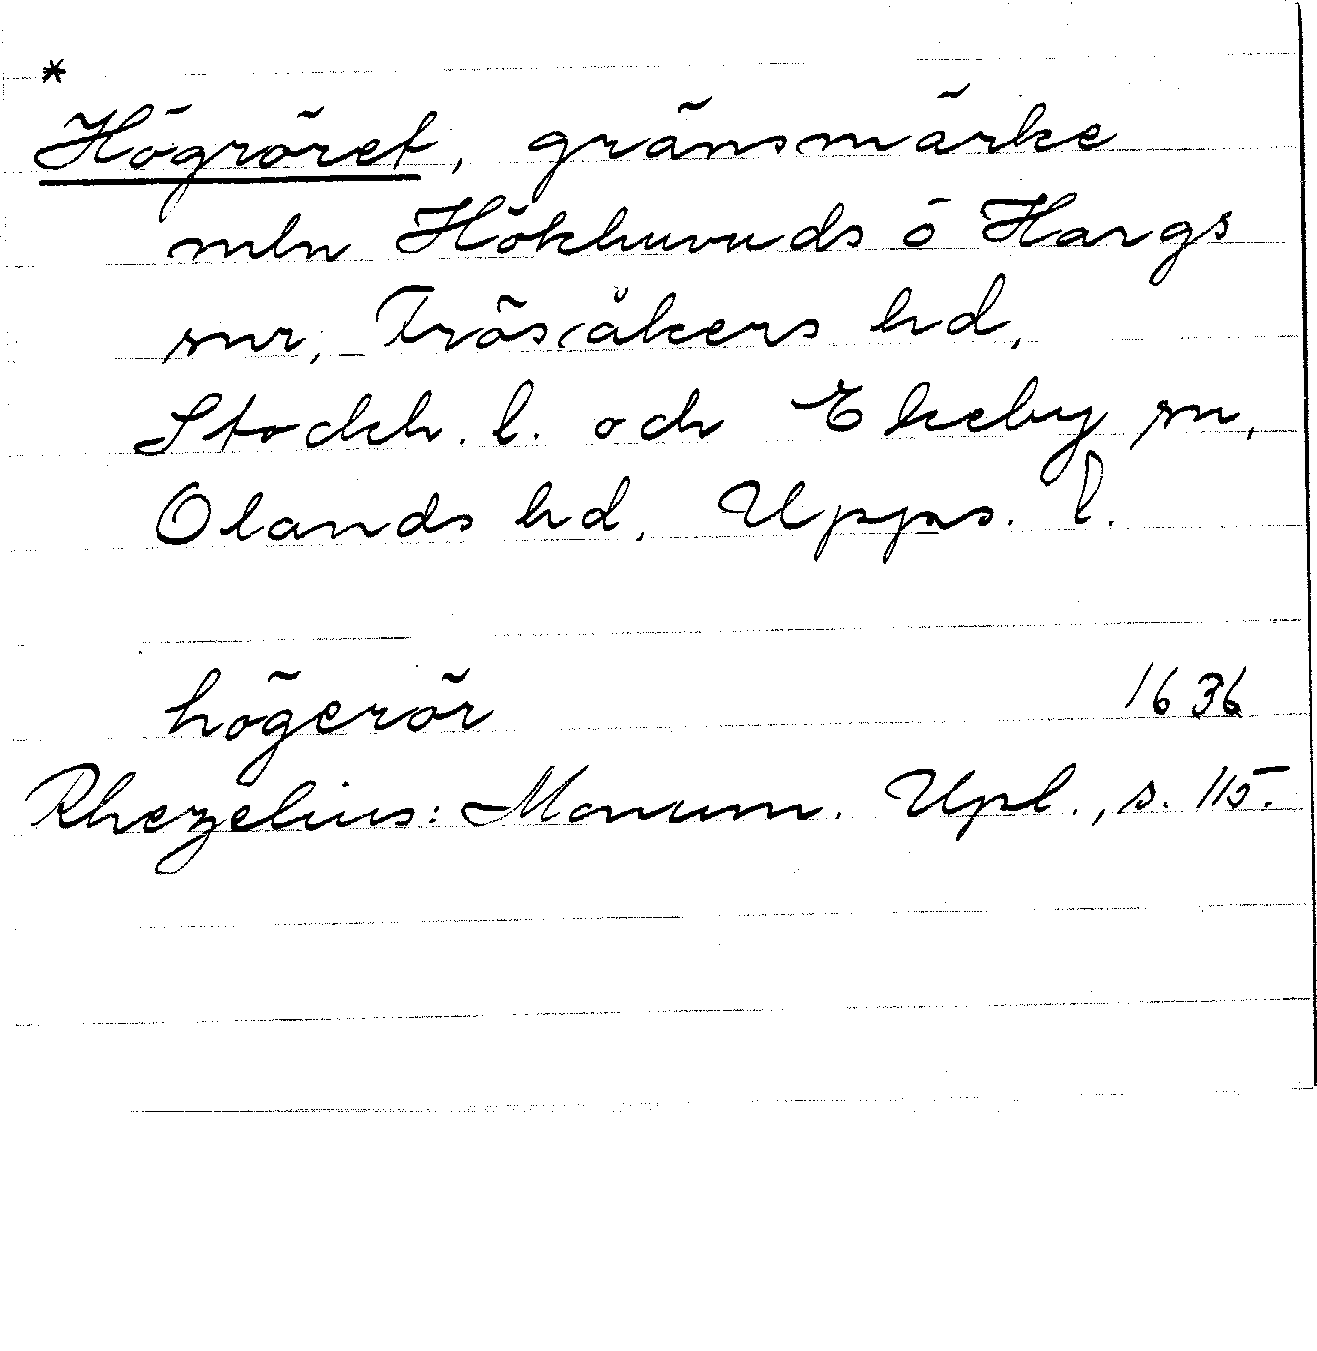 *
Högröret, gränsmärke
mln Hökhuvuds o Hargs
snr, Frösåkers hd,
Stockh. l. och Ekeby sn,
Olands hd, Upps. l.
högerör 1636
Rhezelius: Monum. Upl., s. 115.